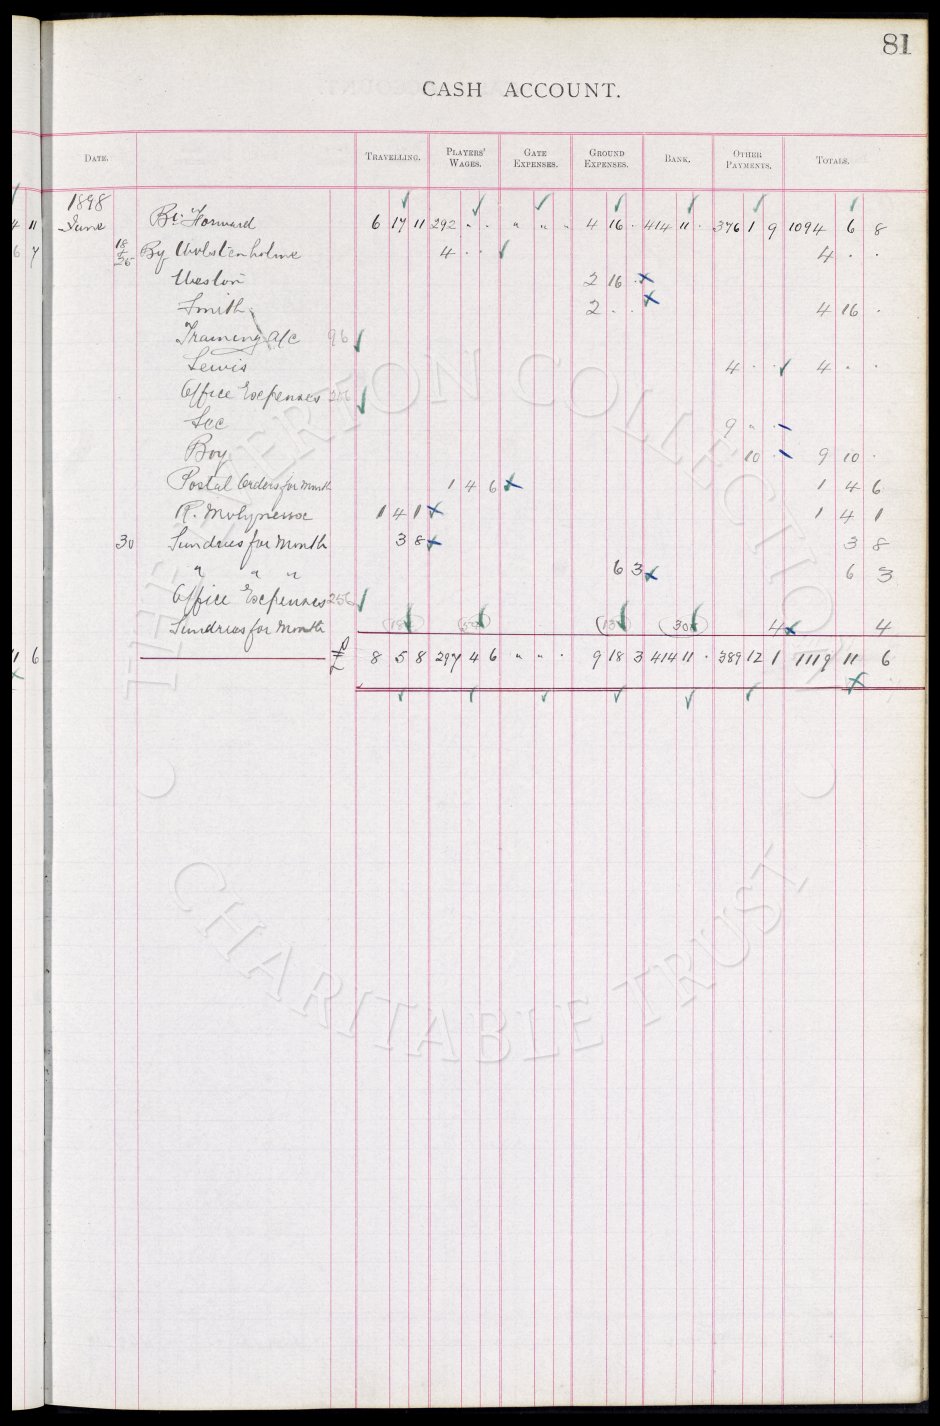 81
CASH ACCOUNT.
DATE. TRAVELLING. PLAYERS' WAGES. GATE EXPENSES. GROUND EXPENSES. BANK. OTHER PAYMENTS. TOTALS.
1898
4 11 June Bt. Forward 6 17 11 292 " " " " " 4 16 . 414 11 . 376 1 9 1094 6 8
6 7 18 & 25 By Wolstenholme 4 . . 4 . .
Weston 2 16 .
Smith 2 . . 4 16 .
Training a/c 96
Lewis 4 . . 4 . .
Office Expenses 256
Sec 9 " .
Boy 10 . 9 10 .
Postal Orders for Month 1 4 6 1 4 6
R. Molyneux 1 4 1 1 4 1
30 Sundries for Month 3 8 3 8
" " " 6 3 6 3
Office Expenses 256
Sundries for Month 4 4
11 6 £ 8 5 8 297 4 6 " " . 9 18 3 414 11 . 389 12 1 1119 11 6
THE EVERTON COLLECTION
CHARITABLE TRUST